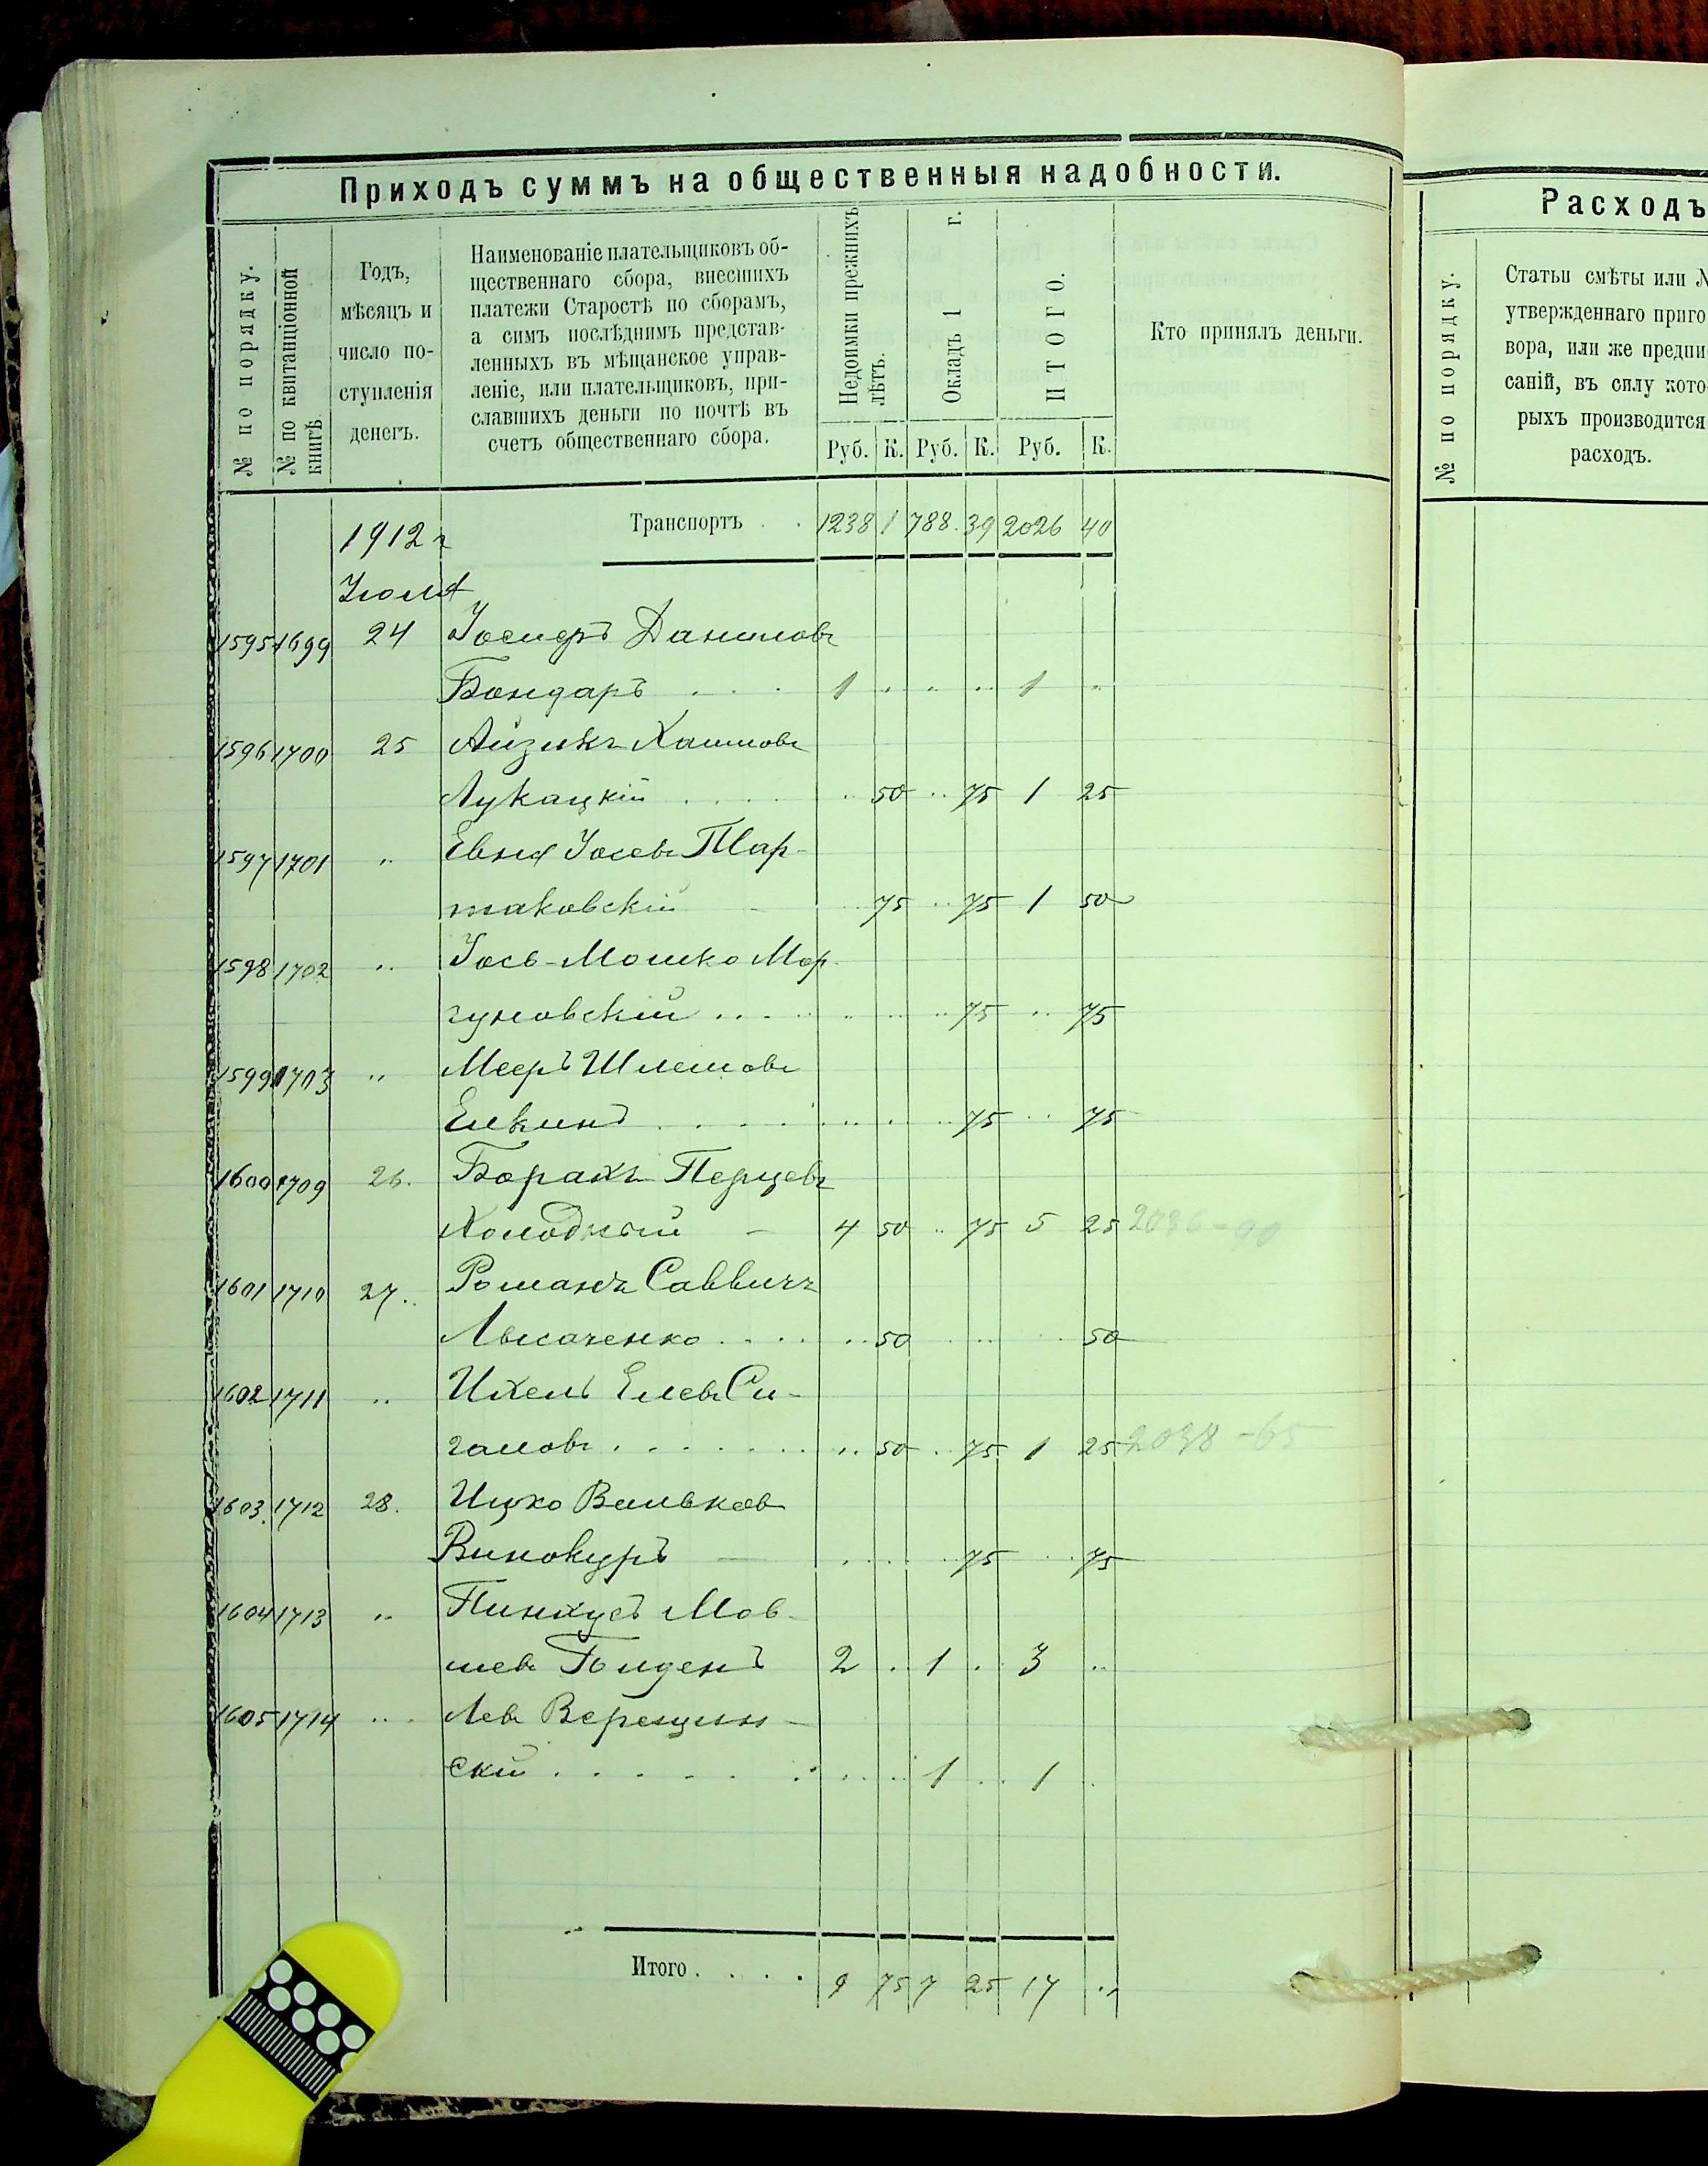 Приходъ суммъ на общественныя надобности.
№ по порядку.
№ по квитанціонной
книгѣ
Годъ,
мѣсяцъ и
число по-
ступленія
денегъ.
Наименованіе плательщиковъ об-
щественнаго сбора, внесшихъ
платежи Старостѣ по сборамъ,
а симъ послѣднимъ представ-
ленныхъ въ мѣщанское управ-
леніе, или плательщиковъ, при-
славшихъ деньги по почтѣ въ
счетъ общественнаго сбора.
Недоимки прежнихъ
лѣтъ.
Окладъ 1 г.
ИТОГО.
Руб. К. Руб. К. Руб. К.
Кто принялъ деньги.
1912 г Транспортъ . . 1238 1 788. 39 2026 40
Іюля
1595 1699 24 Іосифъ Даниловъ
Бондаръ . . . 1 .. .. .. 1 ..
1596 1700 25 Айзикъ Хаимовъ
Лукацкій . . . . .. 50 .. 75 1 25
1597 1701 .. Евна Іосевъ Шар-
таковскій - .. 75 .. 75 1 50
1598 1702 .. Іось-Мошко Мор-
гуновскій .. .. 75 .. 75
1599 1703 .. Мееръ Шлемовъ
Елкинъ . . . . .. 75 .. 75
1600 1709 26. Борахъ Перцевъ
Холодный - 4 50 .. 75 5 25 2036-90
1601 1710 27. Романъ Саввичъ
Лысаченко . . . . .. 50 .. 50
1602 1711 .. Ихель Елевъ Си-
галовъ . . . . . . .. 50 .. 75 1 25 2038-65
1603. 1712 28. Ицко Вольков
Винокуръ - .. 75 .. 75
1604 1713 .. Пинхусъ Мов-
шевъ Голденъ 2 . 1 . 3 ..
1605 1714 .. Левъ Верещин-
скій . . . . . . 1 .. 1 .
Итого . . . . 9 75 7 25 17 ..
Расходъ
№ по порядку.
Статьи смѣты или №
утвержденнаго приго
вора, или же предпи
саній, въ силу кото
рыхъ производится
расходъ.